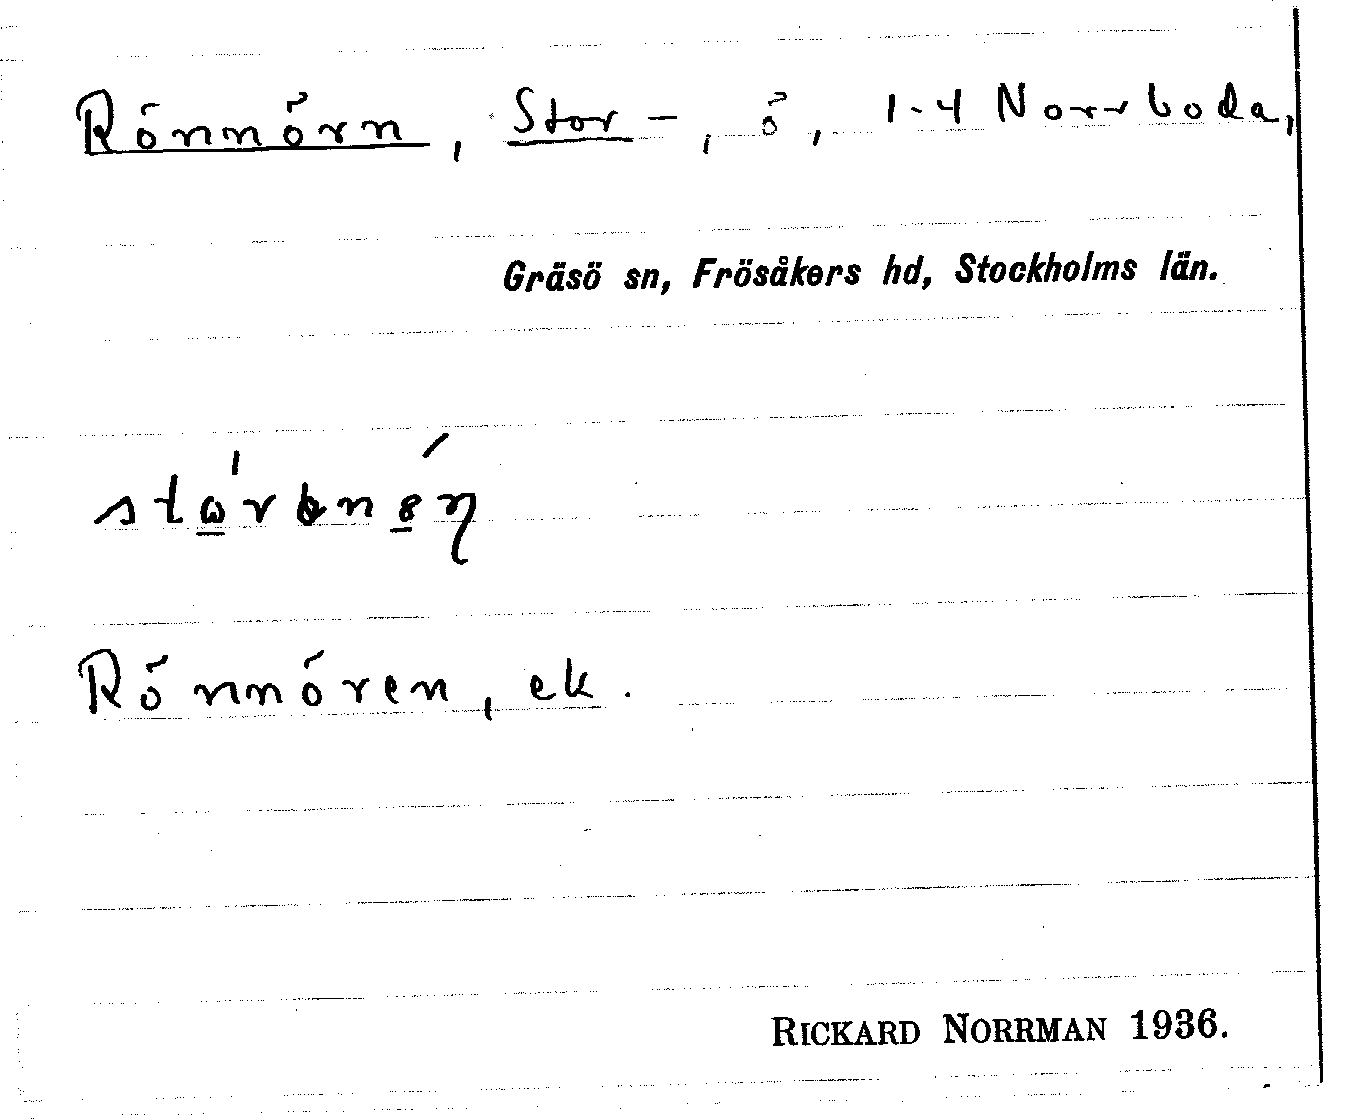 Rönnörn, Stor-, ö, 1-4 Norrboda,
Gräsö sn, Frösåkers hd, Stockholms län.
Rönnören, ek.
RICKARD NORRMAN 1936.